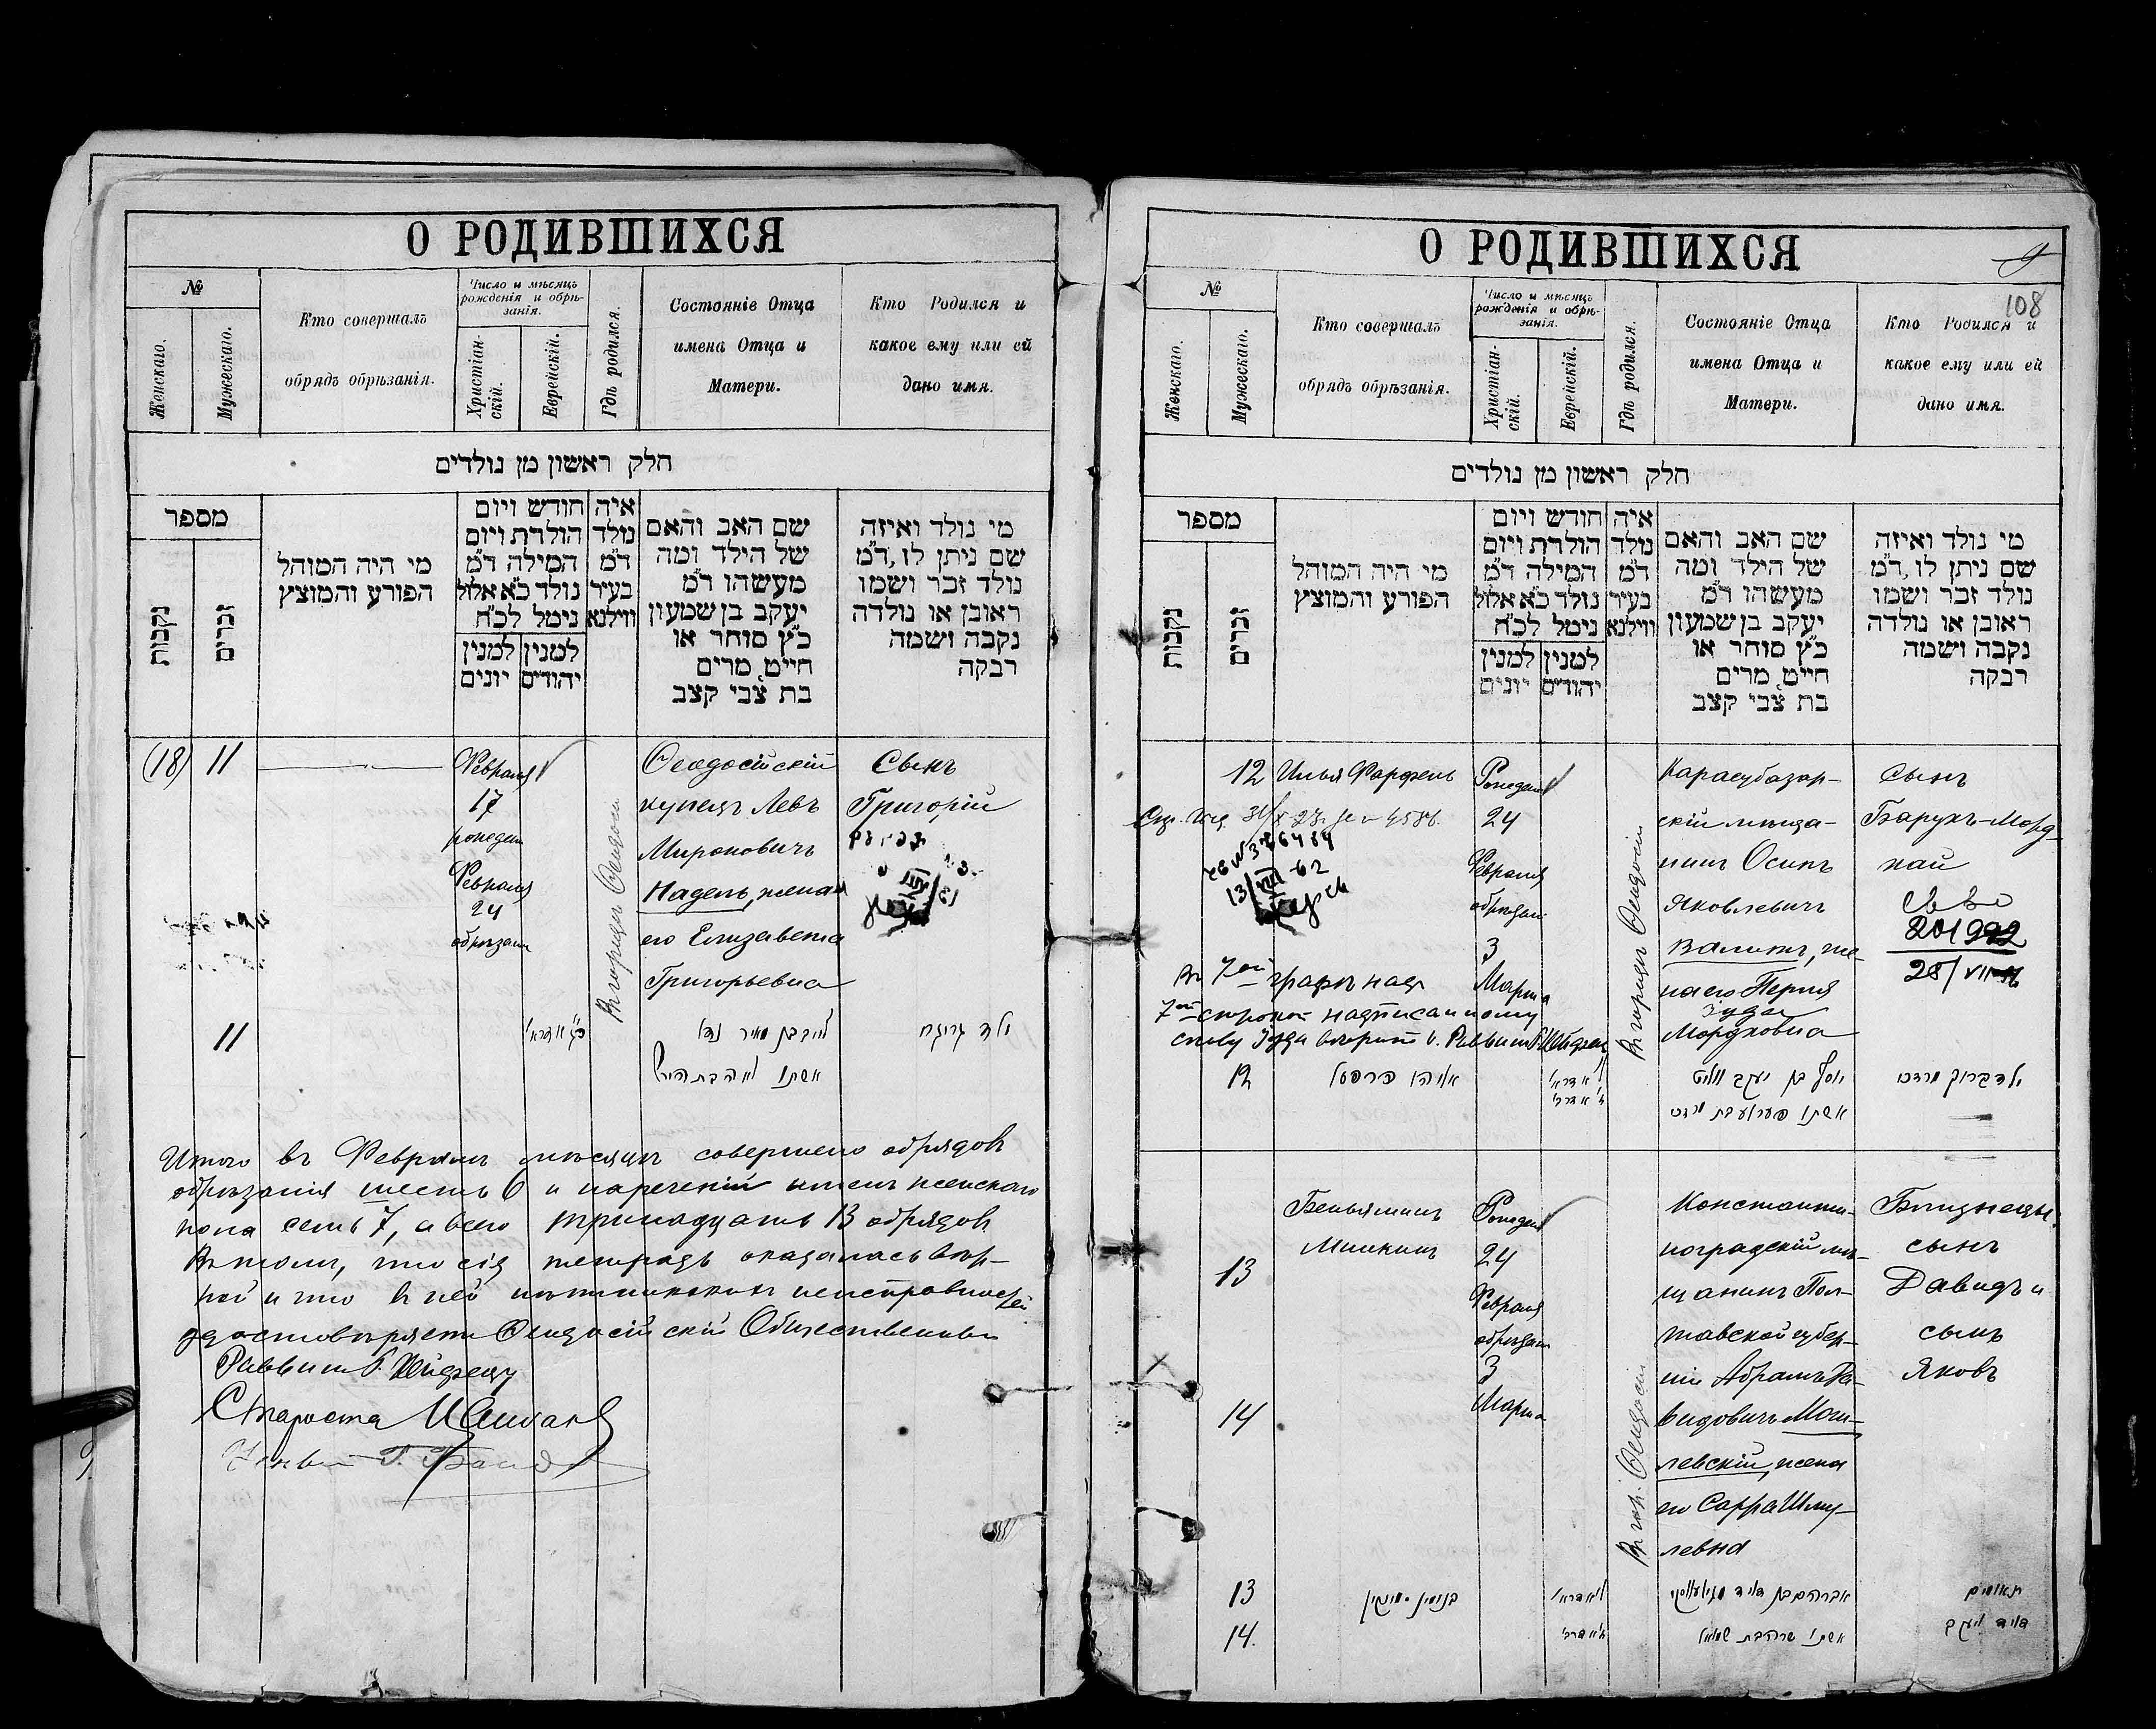 О РОДИВШИХСЯ
№
Женскаго.
Мужескаго.
Кто совершалъ
обрядъ обрѣзанія.
Число и мѣсяцъ
рожденія и обрѣ-
занія.
Христіан-
скій.
Еврейскій.
Гдѣ родился.
Состояніе Отца
имена Отца и
Матери.
Кто Родился и
какое ему или ей
дано имя.
חלק ראשון מן נולדים
מספר
נקבות
זכרים
מי היה המוהל
הפורע והמוצץ
חודש ויום
הולדת ויום
המילה ד״מ
נולד כ״א אלול
נימל לכ״ח
למנין
יהודים
למנין
יונים
איה
נולד
ד״מ
בעיר
ווילנא
שם האב והאם
של הילד ומה
מעשהו ד״מ
יעקב בן שמעון
כ״ץ סוחר או
חייט, מרים
בת צבי קצב
מי נולד ואיזה
שם ניתן לו, ד״מ
נולד זכר ושמו
ראובן או נולדה
נקבה ושמה
רבקה
(18) 11
Февраля
17
рожден
Февраля
24
обрѣзан
Въ городѣ Ѳеодосіи
Ѳеодосійскій
купецъ Левъ
Мироновичъ
Надель, жена
его Елизавета
Григорьевна
Сынъ
Григорій
11
Итого въ Февралѣ мѣсяцѣ совершено обрядовъ
обрѣзанія шесть 6 и нареченій именъ женскаго
пола семь 7, а всего тринадцать 13 обрядовъ
Въ томъ, что сія тетрадь оказалась вѣр-
ной и что въ ней никакихъ неисправностей
удостовѣряетъ Ѳеодосійскій Общественный
Раввинъ
Староста
О РОДИВШИХСЯ
9
108
№
Женскаго.
Мужескаго.
Кто совершалъ
обрядъ обрѣзанія.
Число и мѣсяцъ
рожденія и обрѣ-
занія.
Христіан-
скій.
Еврейскій.
Гдѣ родился.
Состояніе Отца
имена Отца и
Матери.
Кто Родился и
какое ему или ей
дано имя.
חלק ראשון מן נולדים
מספר
נקבות
זכרים
מי היה המוהל
הפורע והמוצץ
חודש ויום
הולדת ויום
המילה ד״מ
נולד כ״א אלול
נימל לכ״ח
למנין
יהודים
למנין
יונים
איה
נולד
ד״מ
בעיר
ווילנא
שם האב והאם
של הילד ומה
מעשהו ד״מ
יעקב בן שמעון
כ״ץ סוחר או
חייט, מרים
בת צבי קצב
מי נולד ואיזה
שם ניתן לו, ד״מ
נולד זכר ושמו
ראובן או נולדה
נקבה ושמה
רבקה
12
Илья Фарфель
Рожден
24
Февраля
обрѣзан
3
Марта
Въ городѣ Ѳеодосіи
Карасубазар-
скій мѣща-
нинъ Осипъ
Яковлевичъ
Валитъ, же-
на его Перля
Зуда
Мордковна
Сынъ
Барухъ-Морд-
хай
Св во
28/VII
Въ 7ой графѣ надъ
7ой строкой надписанному
слову Зуда вѣрить. Раввинъ
12
13
14
Беньяминъ
Минкинъ
Рожден
24
Февраля
обрѣзан
3
Марта
Въ гор. Ѳеодосіи
Константи-
ноградскій мѣ-
щанинъ Пол-
тавской губер-
ніи Абрамъ Да-
видовичъ Моги-
левскій, жена
его Сарра Шму-
левна
Близнецы
сынъ
Давидъ и
сынъ
Яковъ
13
14.
תאומים
דוד ויעקב